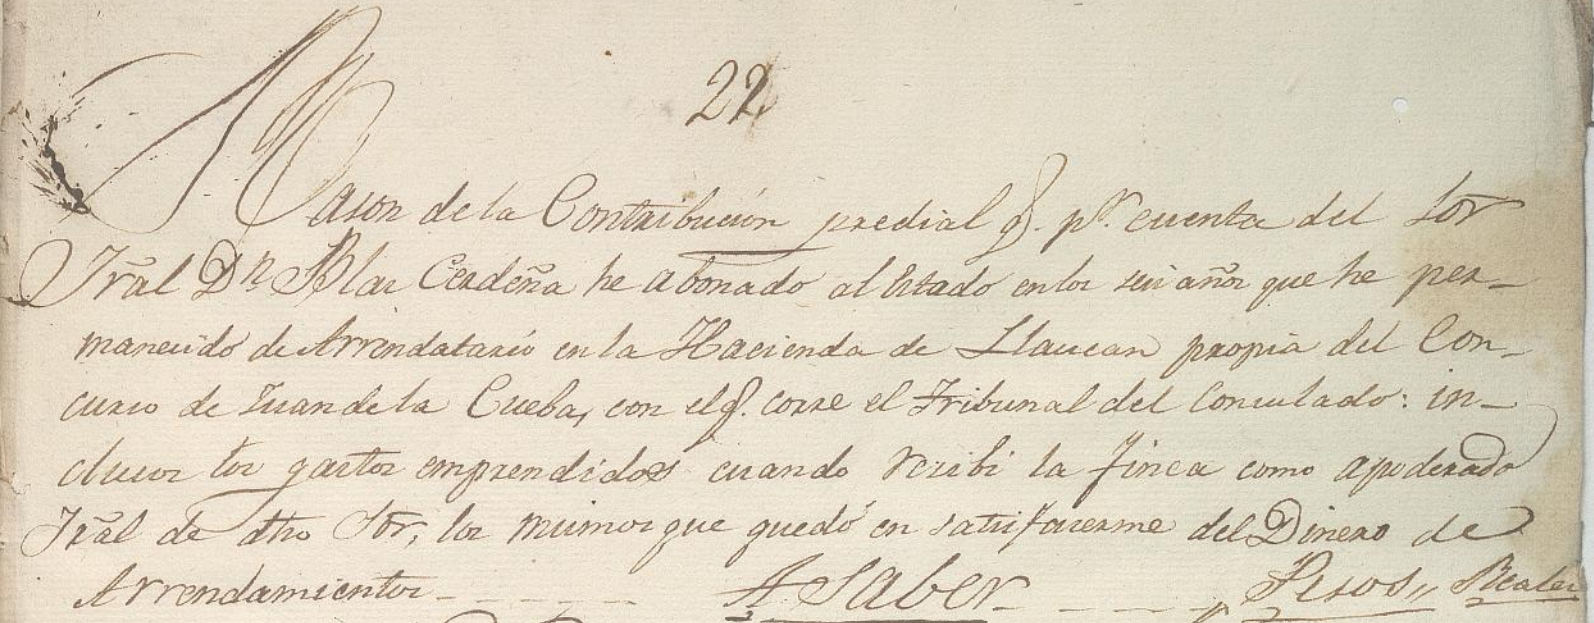 22
Rason de la Contribución predial q. pr. cuenta del Sor
Gral Dn Blas Cerdeña he abonado al Estado en los seis años que he per-
manecido de Arrendatario en la Hacienda de Llaucan propia del Con-
curso de Juan de la Cueba, con el q. corre el Tribunal del Consulado: in-
clusos los gastos emprendidos cuando recibi la finca como apoderado
Gral de dho Sor, los mismos que quedó en satisfacerme del Dinero de
Arrendamientos - - - - - A Saber - - - - Pesos,, Reales